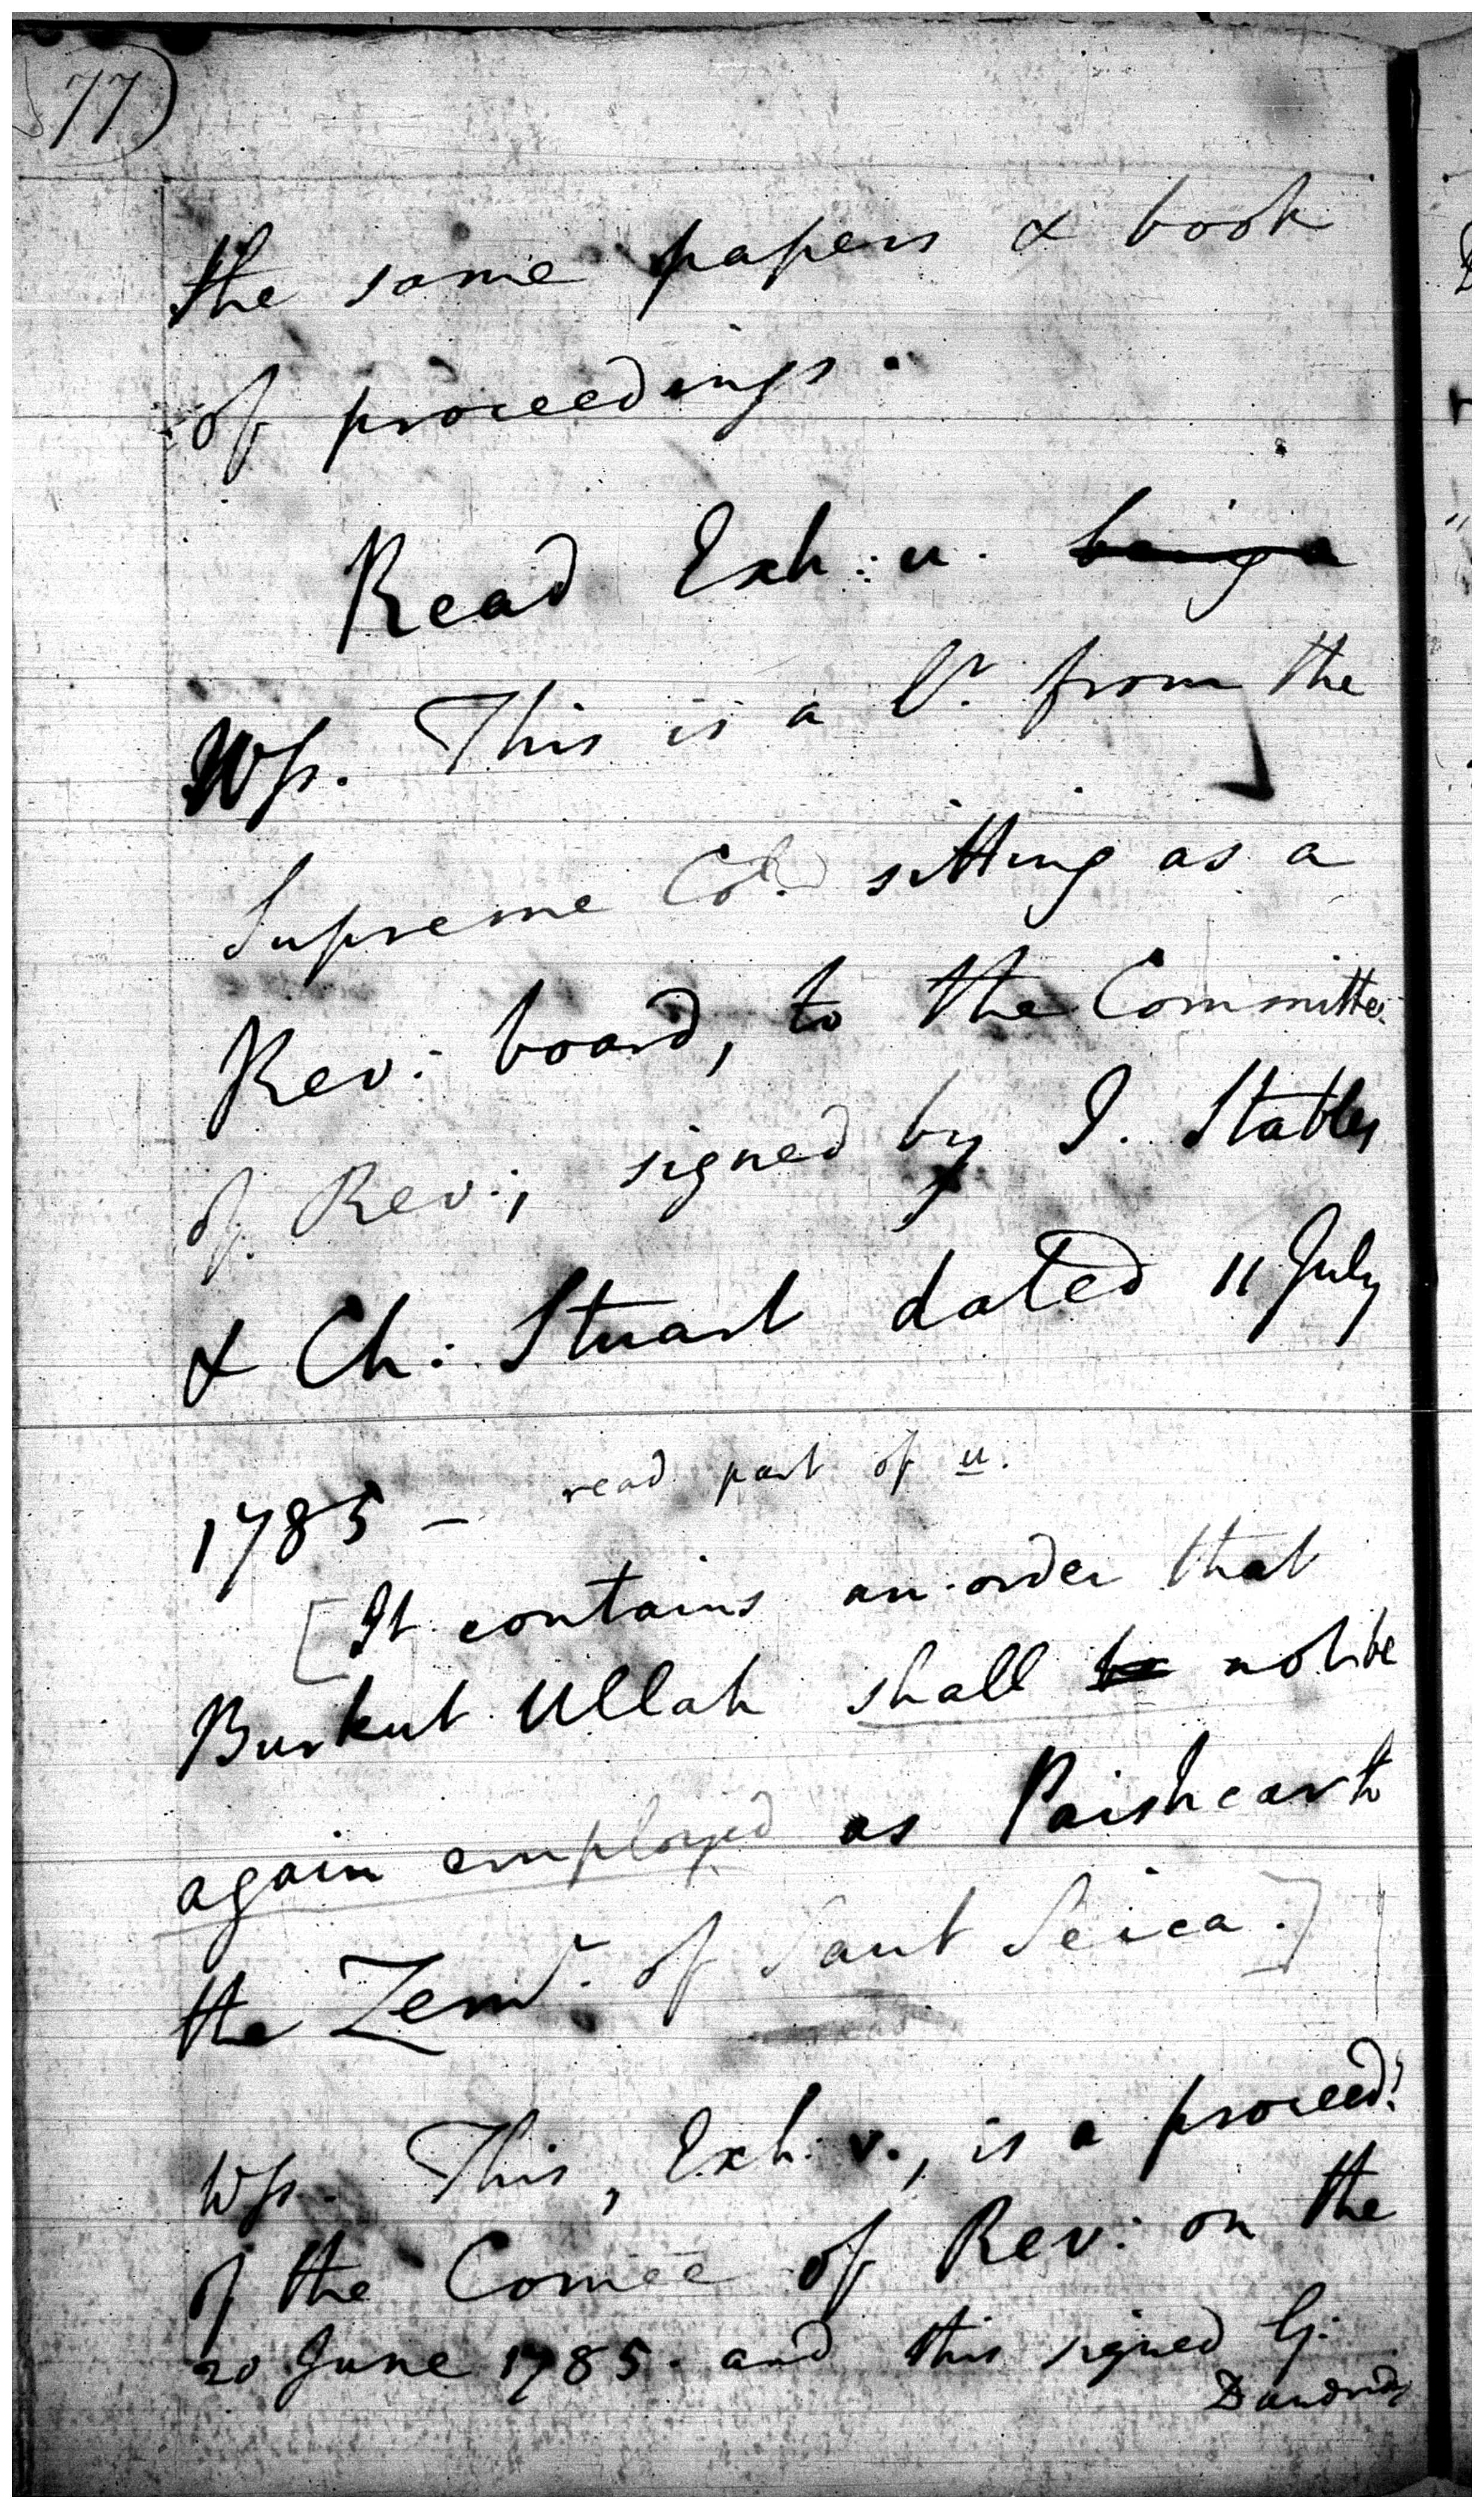 77)
the same papers & book
of proceedings.
Read Exh: u. being a
Wss. This is a lr. from the
Supreme Col. sitting as a
Rev: board, to the Committee
of Rev:, signed by J. Stables
& Ch: Stuart dated 11 July
1785 — read part of u.
[It contains an order that
Burkut Ullah shall be not be
again employed as Paishcar to
the Zemr. of Saut Seica.]
Wss. This, Exh. v., is a proceed:
of the Comee of Rev: on the
20 June 1785. and this signed G.
Dandridge